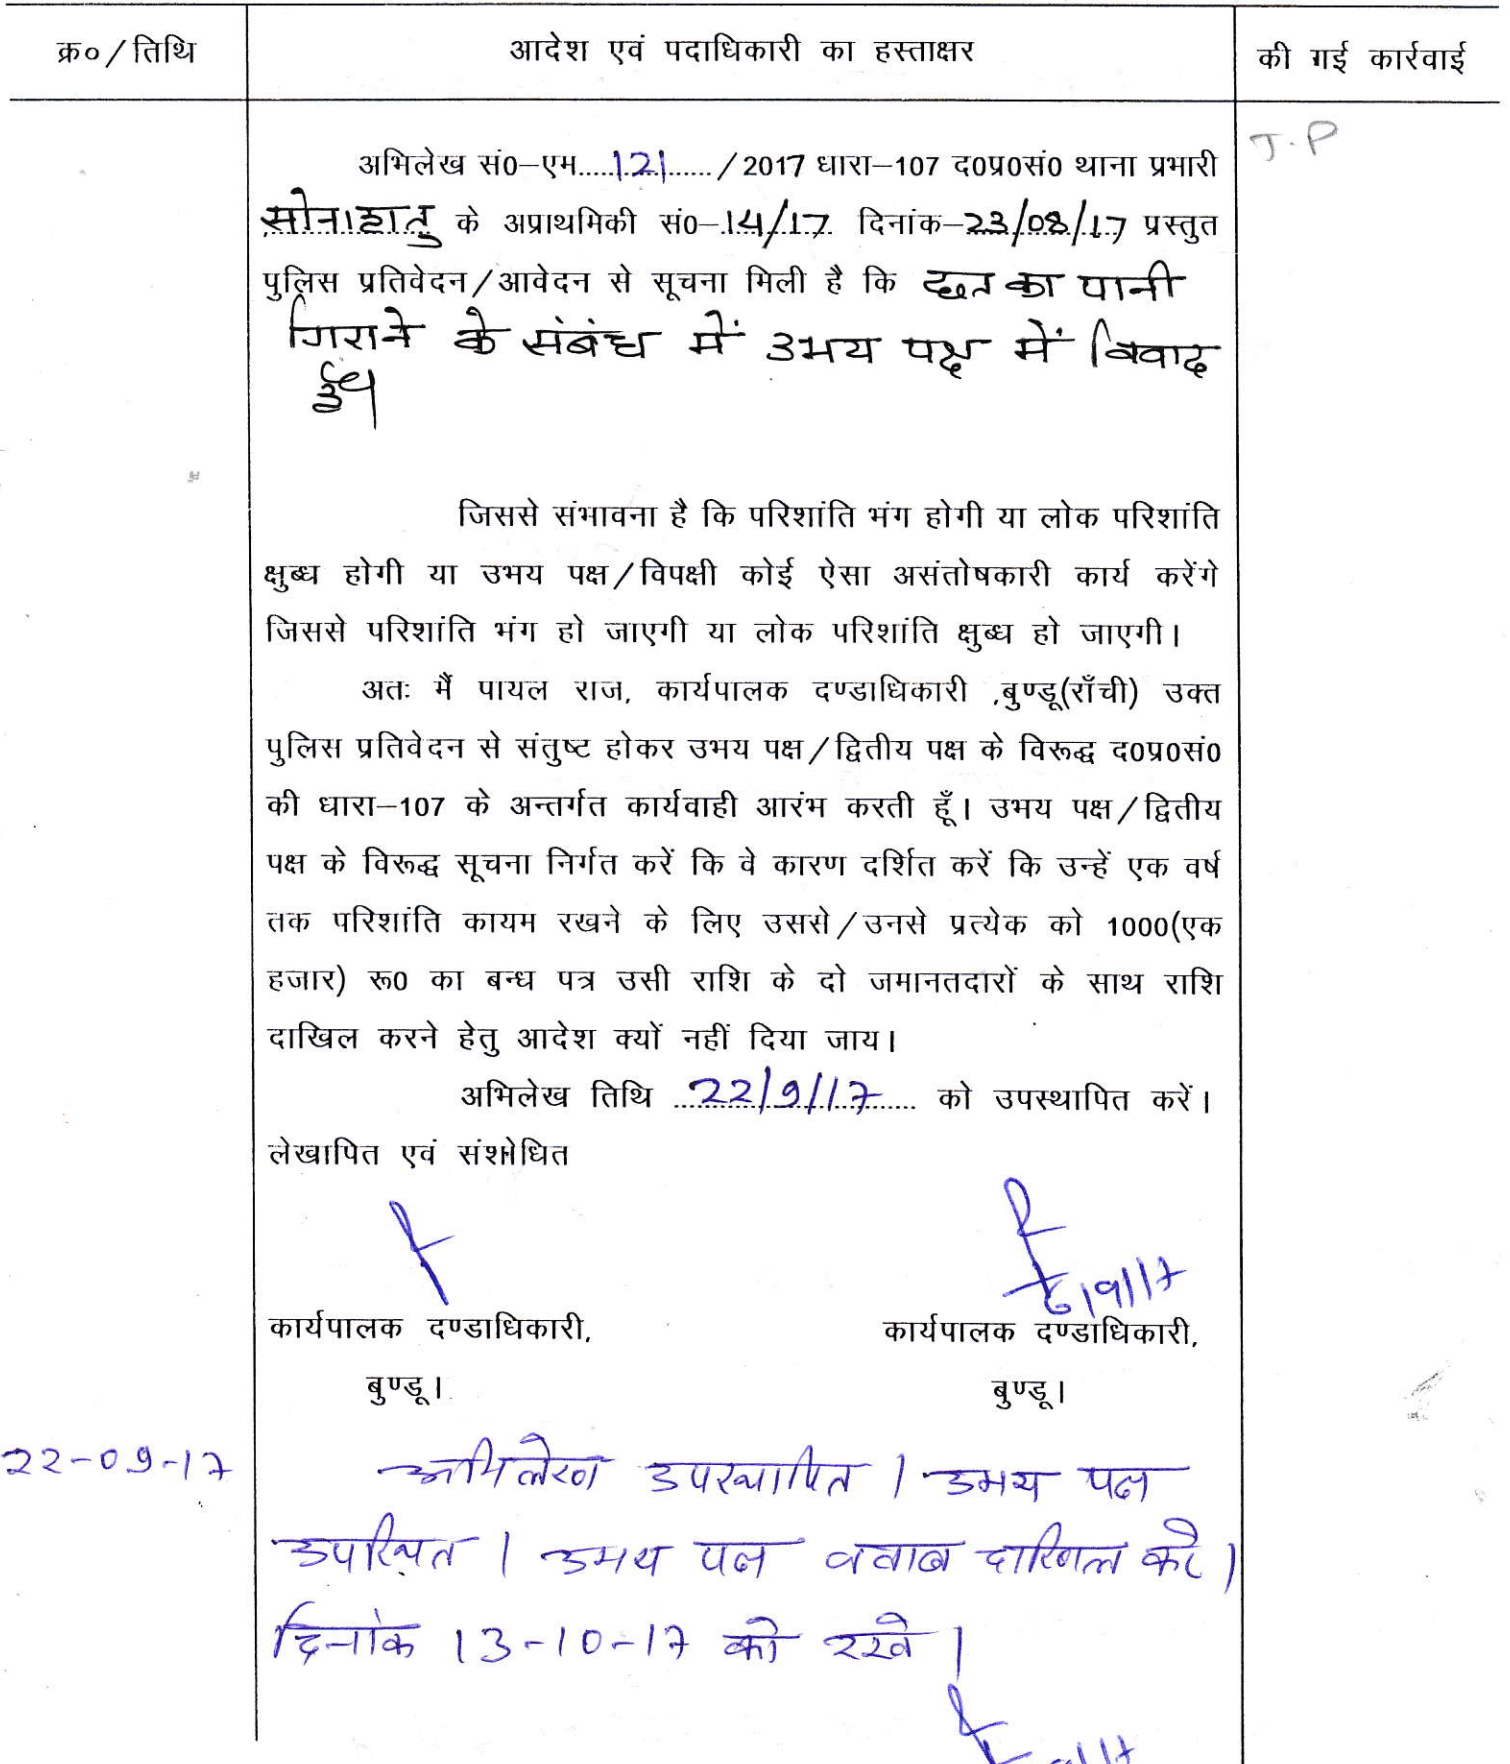 क्र०/तिथि
आदेश एवं पदाधिकारी का हस्ताक्षर
की गई कार्रवाई
J.P
अभिलेख सं0–एम.....121....../2017 धारा–107 द0प्र0सं0 थाना प्रभारी
सोनाहातु के अप्राथमिकी सं0–14/17 दिनांक–23/08/17 प्रस्तुत
पुलिस प्रतिवेदन/आवेदन से सूचना मिली है कि छत का पानी
गिराने के संबंध में उभय पक्ष में विवाद
जिससे संभावना है कि परिशांति भंग होगी या लोक परिशांति
क्षुब्ध होगी या उभय पक्ष/विपक्षी कोई ऐसा असंतोषकारी कार्य करेंगे
जिससे परिशांति भंग हो जाएगी या लोक परिशांति क्षुब्ध हो जाएगी।
अतः मैं पायल राज, कार्यपालक दण्डाधिकारी ,बुण्डू(राँची) उक्त
पुलिस प्रतिवेदन से संतुष्ट होकर उभय पक्ष/द्वितीय पक्ष के विरूद्ध द0प्र0सं0
की धारा–107 के अन्तर्गत कार्यवाही आरंभ करती हूँ। उभय पक्ष/द्वितीय
पक्ष के विरूद्ध सूचना निर्गत करें कि वे कारण दर्शित करें कि उन्हें एक वर्ष
तक परिशांति कायम रखने के लिए उससे/उनसे प्रत्येक को 1000(एक
हजार) रू0 का बन्ध पत्र उसी राशि के दो जमानतदारों के साथ राशि
दाखिल करने हेतु आदेश क्यों नहीं दिया जाय।
अभिलेख तिथि 22/9/17 को उपस्थापित करें।
लेखापित एवं संशोधित
6/9/17
कार्यपालक दण्डाधिकारी,
कार्यपालक दण्डाधिकारी,
बुण्डू।
बुण्डू।
22-09-17 अभिलेख उपस्थापित। उभय पक्ष
उपस्थित। उभय पक्ष जवाब दाखिल करे।
दिनांक 13-10-17 को रखे।